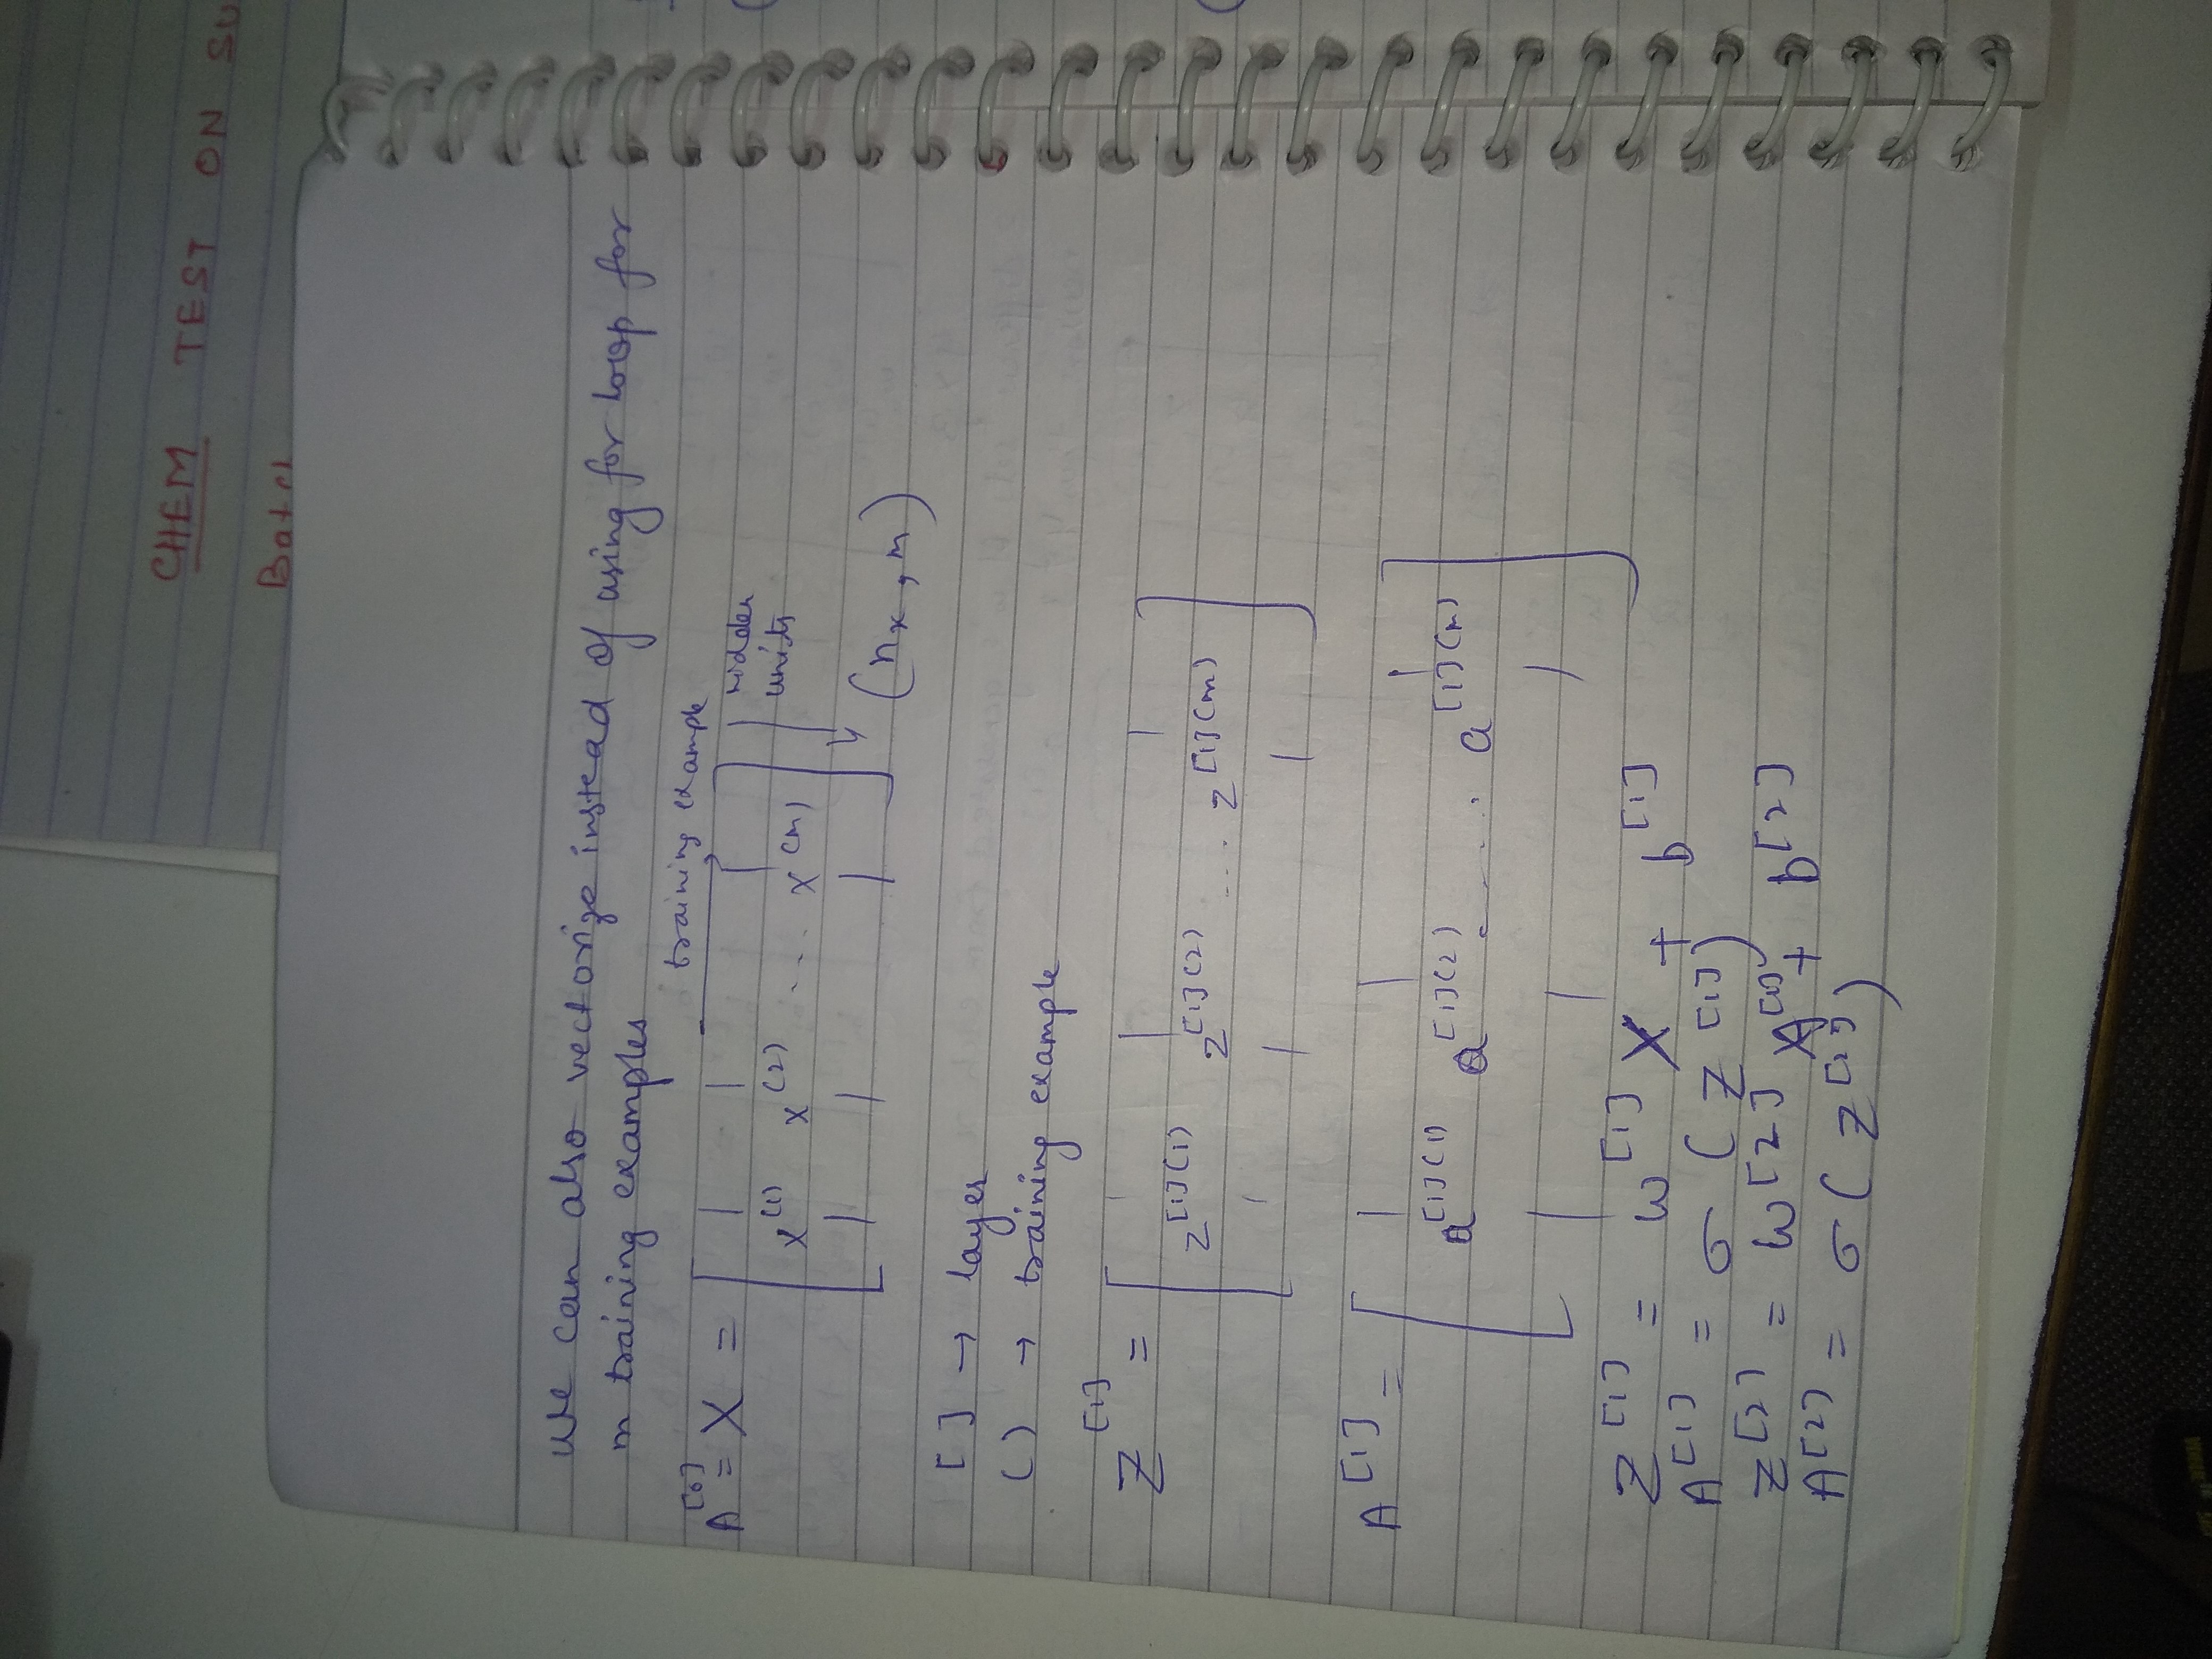 CHEM TEST ON SU
We can also vectorize instead of using for loop for
m training examples
training example
hidden
units
A[0] = X = [ x(1) x(2) ... x(m) ]
(nx, m)
[ ] → layer
( ) → training example
Z[1] = [ z[1](1) z[1](2) .... z[1](m) ]
A[1] = [ a[1](1) a[1](2) ..... a[1](m) ]
Z[1] = W[1] X + b[1]
A[1] = σ ( Z[1] )
Z[2] = W[2] A[1] + b[2]
A[2] = σ ( Z[2] )